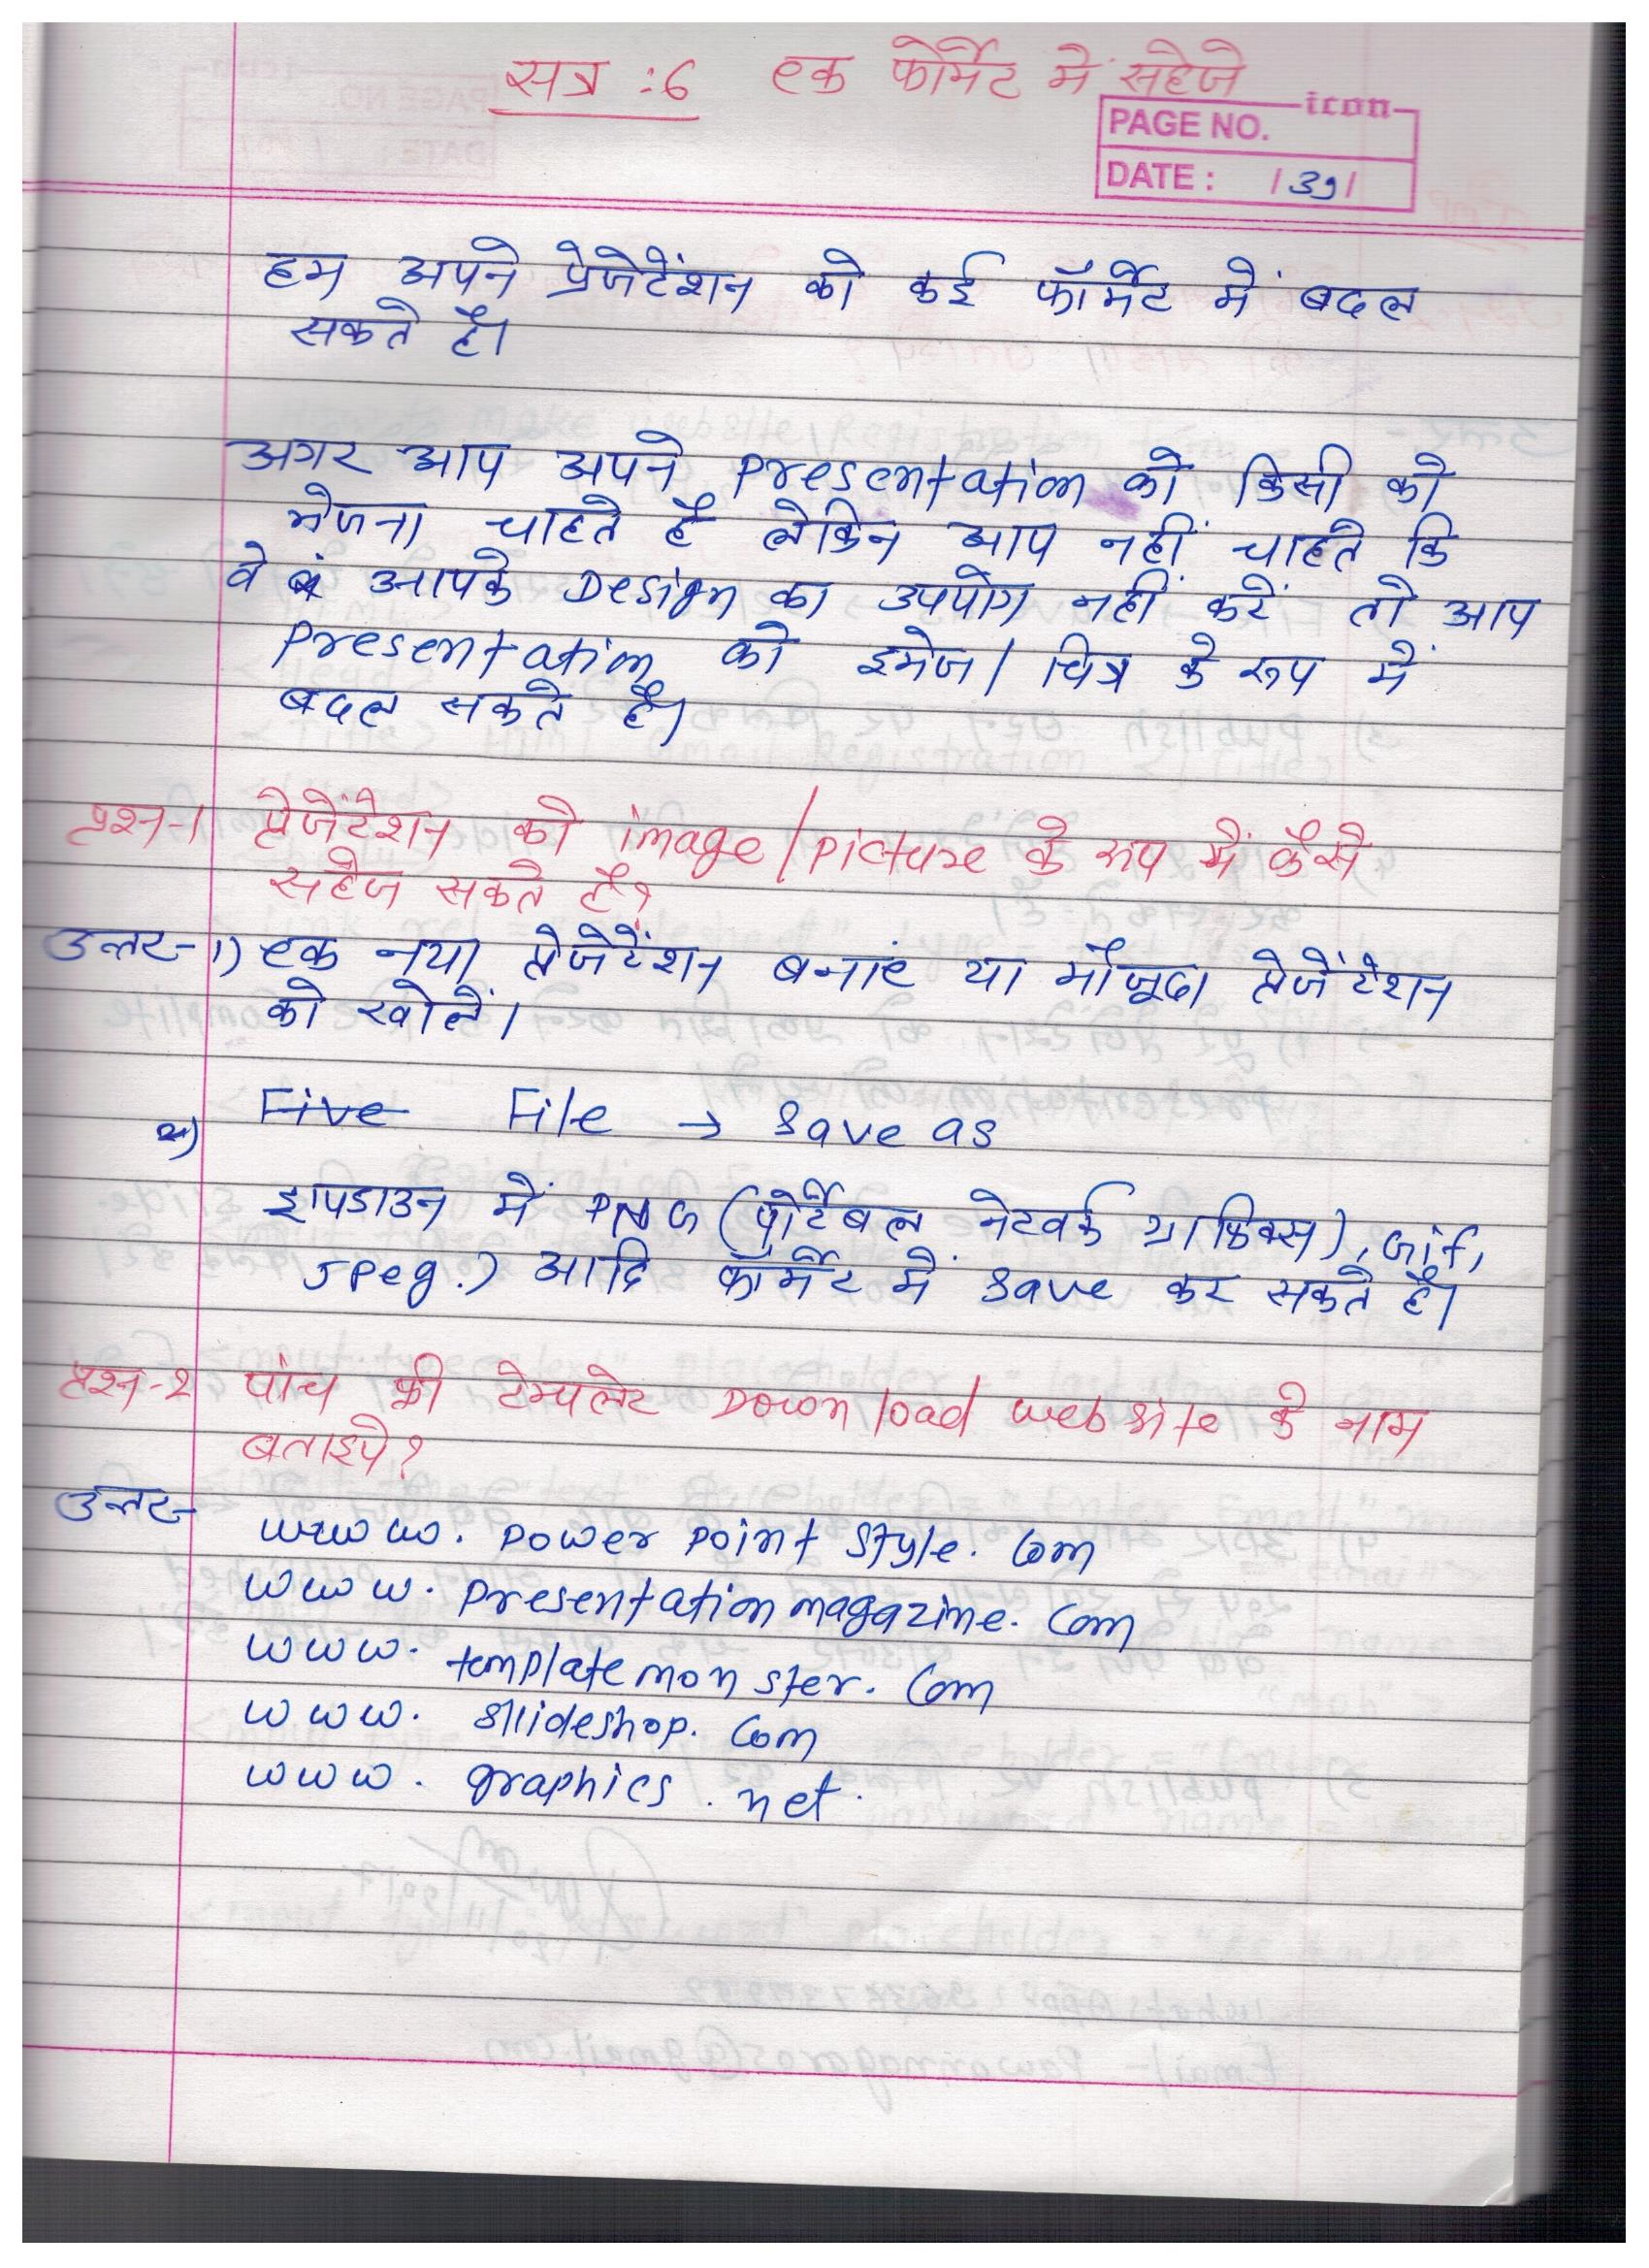 सत्र :6 एक फोर्मेट में सहेजे
icon
PAGE NO.
DATE : / 39 /
हम अपने प्रेजेटेंशन को कई फॉर्मेट में बदल
सकते है।
अगर आप अपने presentation को किसी को
भेजना चाहते है लेकिन आप नहीं चाहते कि
वे आपके Design का उपयोग नहीं करें तो आप
presentation को इमेज / चित्र के रूप में
बदल सकते है।
प्रश्न-1 प्रेजेंटेशन को image/picture के रूप में कैसे
सहेज सकते है?
उत्तर- 1) एक नया प्रेजेटेंशन बनाएं या मौजूदा प्रेजेंटेशन
को खोलें।
२) Five File → Save as
ड्रापडाउन में PNG (पोर्टेबल नेटवर्क ग्राफिक्स), Gif,
Jpeg.) आदि फॉर्मेट में Save कर सकते है।
प्रश्न-२ पांच फ्री टेम्पलेट Download website के नाम
बताइये?
उत्तर-
www. power point style. Com
www. presentationmagazine. Com
www. templatemonster. Com
www. sllideshop. Com
www. graphics . net.